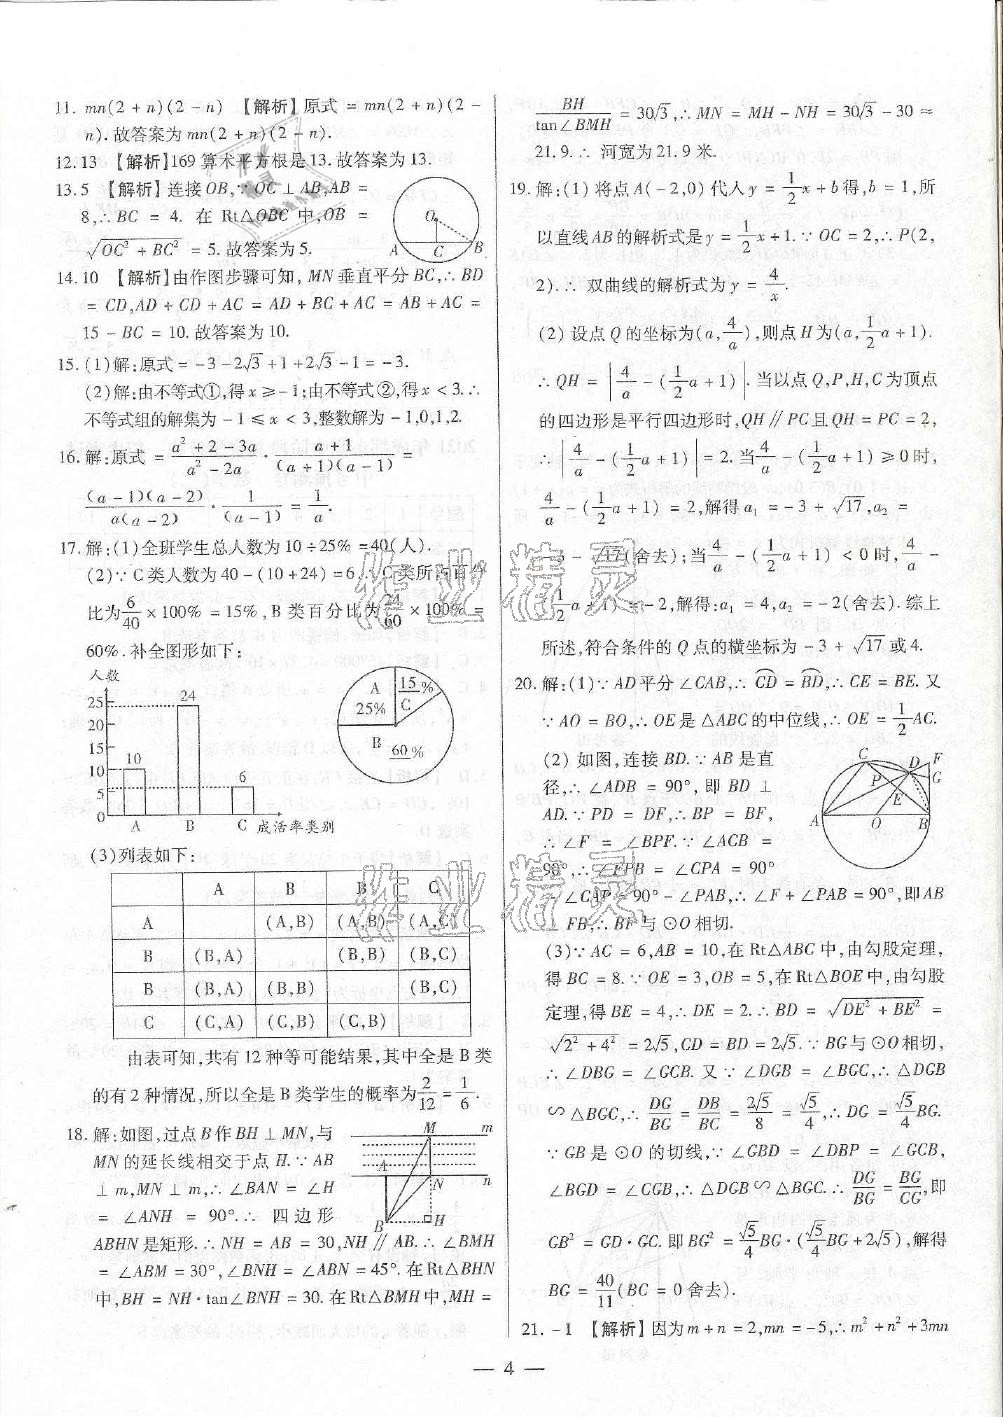 11. mn(2+n)(2-n) 【解析】原式=mn(2+n)(2-
n).故答案为mn(2+n)(2-n).
12.13 【解析】169算术平方根是13.故答案为13.
13.5 【解析】连接OB,∵OC⊥AB,AB=
8,∴BC=4.在Rt△OBC中,OB=
√(OC²+BC²)=5.故答案为5.
O
A C B
14.10 【解析】由作图步骤可知,MN垂直平分BC,∴BD
=CD,AD+CD+AC=AD+BC+AC=AB+AC=
15-BC=10.故答案为10.
15.(1)解:原式=-3-2√3+1+2√3-1=-3.
(2)解:由不等式①,得x≥-1;由不等式②,得x<3.∴
不等式组的解集为-1≤x<3,整数解为-1,0,1,2.
16.解:原式=(a²+2-3a)/(a²-2a)·(a+1)/((a+1)(a-1))=
((a-1)(a-2))/(a(a-2))·1/(a-1)=1/a.
17.解:(1)全班学生总人数为10÷25%=40(人).
(2)∵C类人数为40-(10+24)=6,∴C类所占百分
比为6/40×100%=15%,B类百分比为24/60×100%=
60%.补全图形如下:
人数
25
20
15
10
5
0
10
24
6
A B C 成活率类别
A 25%
15% C
B 60%
(3)列表如下:
A B B C
A (A,B) (A,B) (A,C)
B (B,A) (B,B) (B,C)
B (B,A) (B,B) (B,C)
C (C,A) (C,B) (C,B)
由表可知,共有12种等可能结果,其中全是B类
的有2种情况,所以全是B类学生的概率为2/12=1/6.
18.解:如图,过点B作BH⊥MN,与
MN的延长线相交于点H.∵AB
⊥m,MN⊥m,∴∠BAN=∠H
=∠ANH=90°.∴四边形
ABHN是矩形.∴NH=AB=30,NH∥AB.∴∠BMH
=∠ABM=30°,∠BNH=∠ABN=45°.在Rt△BHN
中,BH=NH·tan∠BNH=30.在Rt△BMH中,MH=
M m
A N n
B H
BH/tan∠BMH=30√3,∴MN=MH-NH=30√3-30≈
21.9.∴河宽为21.9米.
19.解:(1)将点A(-2,0)代人y=1/2x+b得,b=1,所
以直线AB的解析式是y=1/2x+1.∵OC=2,∴P(2,
2).∴双曲线的解析式为y=4/x.
(2)设点Q的坐标为(a,4/a),则点H为(a,1/2a+1).
∴QH=|4/a-(1/2a+1)|.当以点Q,P,H,C为顶点
的四边形是平行四边形时,QH∥PC且QH=PC=2,
∴|4/a-(1/2a+1)|=2.当4/a-(1/2a+1)≥0时,
4/a-(1/2a+1)=2,解得a₁=-3+√17,a₂=
-3-√17(舍去);当4/a-(1/2a+1)<0时,4/a-
(1/2a+1)=-2,解得:a₁=4,a₂=-2(舍去).综上
所述,符合条件的Q点的横坐标为-3+√17或4.
20.解:(1)∵AD平分∠CAB,∴⌒CD=⌒BD,∴CE=BE.又
∵AO=BO,∴OE是△ABC的中位线,∴OE=1/2AC.
(2)如图,连接BD.∵AB是直
径,∴∠ADB=90°,即BD⊥
AD.∵PD=DF,∴BP=BF,
∴∠F=∠BPF.∵∠ACB=
90°,∴∠FPB=∠CPA=90°
-∠CAP=90°-∠PAB,∴∠F+∠PAB=90°,即AB
⊥FB,∴BF与⊙O相切.
C D F G P E A O B
(3)∵AC=6,AB=10,在Rt△ABC中,由勾股定理,
得BC=8.∵OE=3,OB=5,在Rt△BOE中,由勾股
定理,得BE=4,∴DE=2.∴BD=√(DE²+BE²)
=√(2²+4²)=2√5,CD=BD=2√5.∵BG与⊙O相切,
∴∠DBG=∠GCB.又∵∠DGB=∠BGC,∴△DGB
∽△BGC,∴DG/BG=DB/BC=2√5/8=√5/4,∴DG=√5/4BG.
∵GB是⊙O的切线,∵∠GBD=∠DBP=∠GCB,
∠BGD=∠CGB,∴△DGB∽△BGC.∴DG/BG=BG/CG,即
GB²=GD·GC.即BG²=√5/4BG·(√5/4BG+2√5),解得
BG=40/11(BC=0舍去).
21.-1 【解析】因为m+n=2,mn=-5,∴m²+n²+3mn
— 4 —
作业精灵
作业精灵